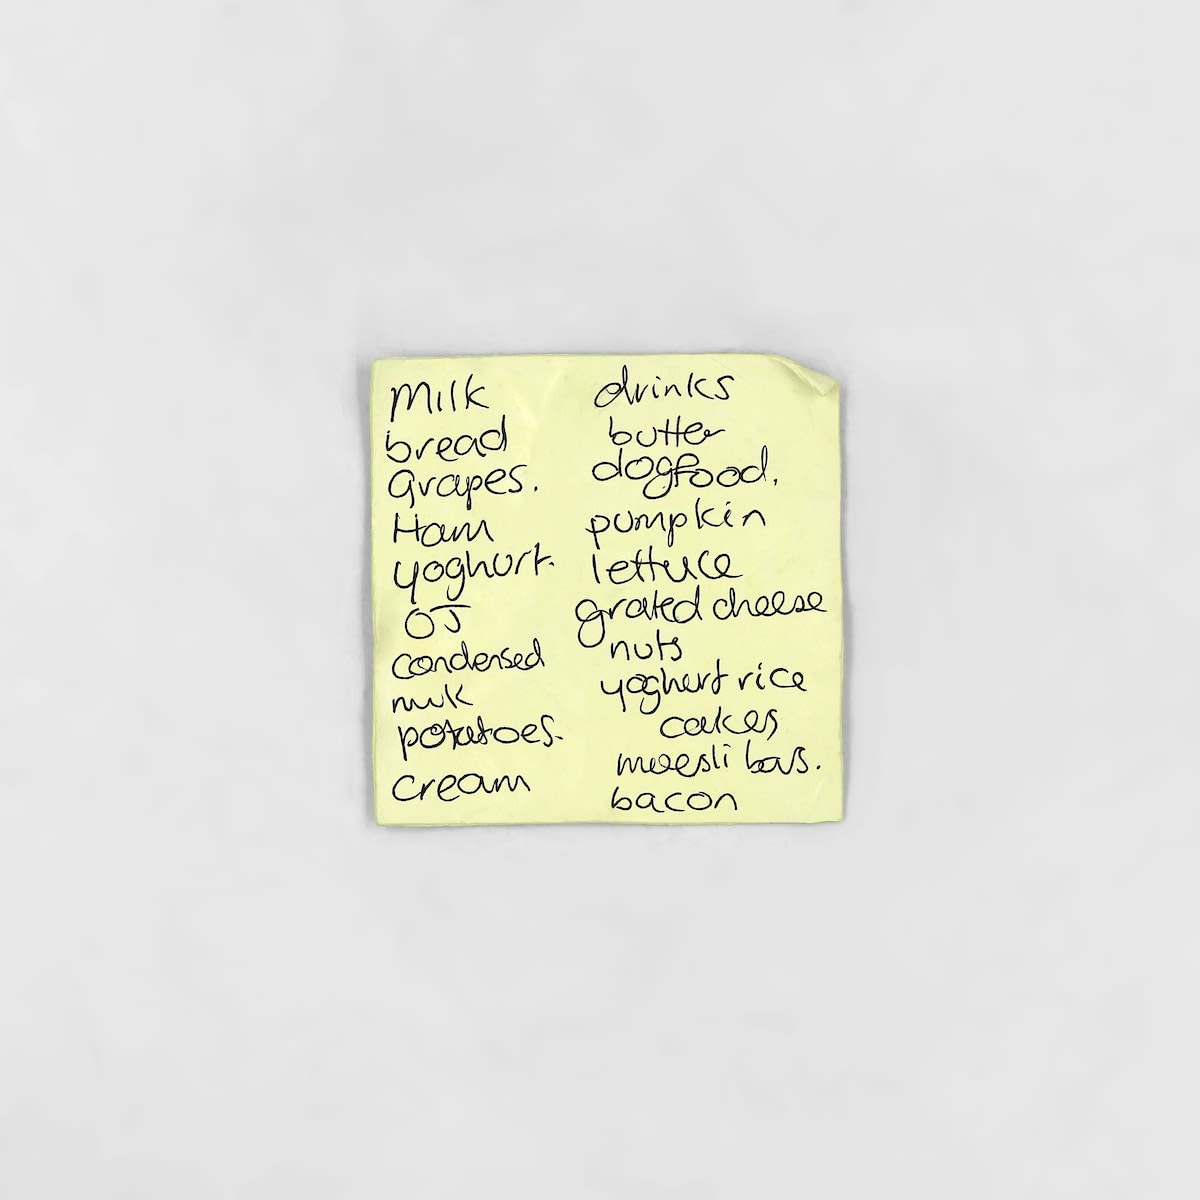 Milk
bread
Grapes.
Ham
yoghurt.
OJ
condensed
milk
potatoes.
cream
drinks
butter
dogfood.
pumpkin
lettuce
grated cheese
nuts
yoghurt rice
cakes
muesli bars.
bacon